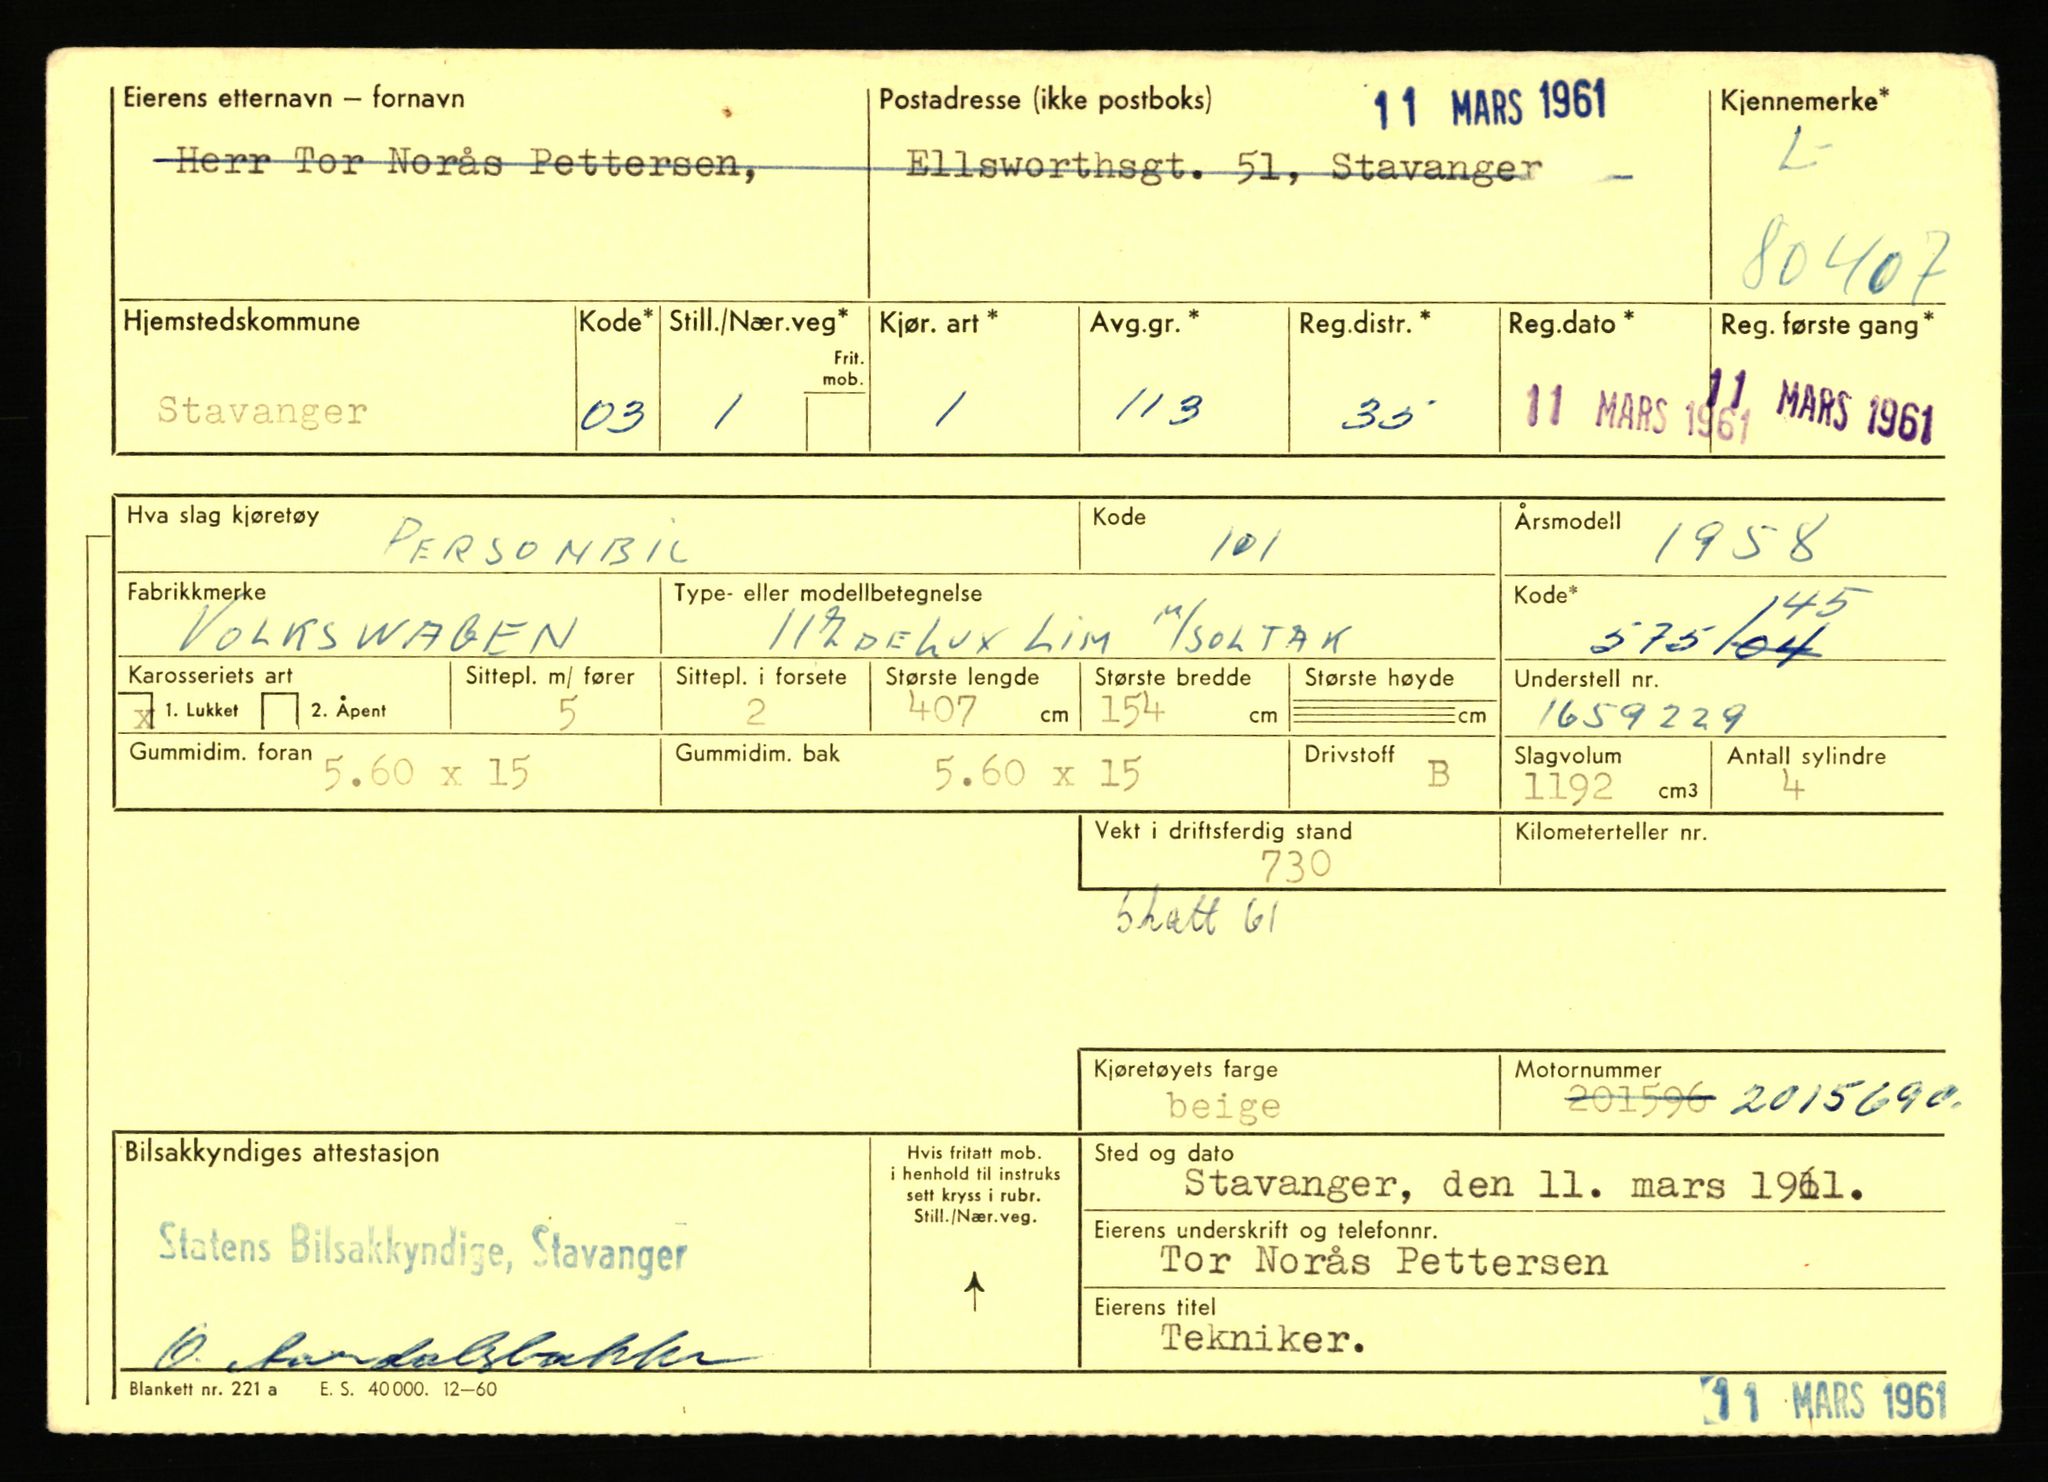 Eierens etternavn – fornavn
Herr Tor Norås Pettersen,
Postadresse (ikke postboks)
11 MARS 1961
Ellsworthsgt. 51, Stavanger
Kjennemerke*
L-
80407
Hjemstedskommune
Stavanger
Kode*
03
Still./Nær.veg*
1
Frit.
mob.
Kjør. art *
1
Avg.gr. *
113
Reg.distr. *
35
Reg.dato *
11 MARS 1961
Reg. første gang*
11 MARS 1961
Hva slag kjøretøy
PERSONBIL
Kode
101
Årsmodell
1958
Fabrikkmerke
VOLKSWAGEN
Type- eller modellbetegnelse
112 DE LUX LIM M/SOLTAK
Kode*
145
575/04
Karosseriets art
x 1. Lukket 2. Åpent
Sittepl. m/ fører
5
Sittepl. i forsete
2
Største lengde
407 cm
Største bredde
154 cm
Største høyde
cm
Understell nr.
1659229
Gummidim. foran
5.60 x 15
Gummidim. bak
5.60 x 15
Drivstoff
B
Slagvolum
1192 cm3
Antall sylindre
4
Vekt i driftsferdig stand
730
Kilometerteller nr.
skatt 61
Kjøretøyets farge
beige
Motornummer
201596 2015690.
Bilsakkyndiges attestasjon
Statens Bilsakkyndige, Stavanger
Hvis fritatt mob.
i henhold til instruks
sett kryss i rubr.
Still./Nær.veg.
Sted og dato
Stavanger, den 11. mars 1961.
Eierens underskrift og telefonnr.
Tor Norås Pettersen
Eierens titel
Tekniker.
Blankett nr. 221 a E. S. 40 000. 12–60
11 MARS 1961